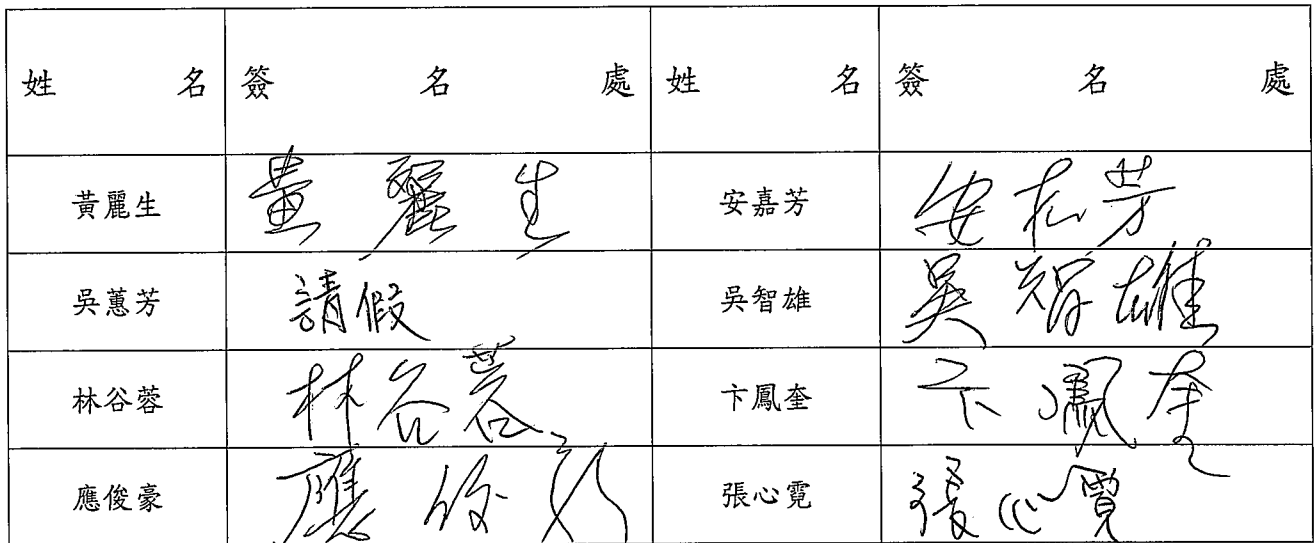 姓 名 簽 名 處 姓 名 簽 名 處
黃麗生 黃麗生 安嘉芳 安嘉芳
吳蕙芳 請假 吳智雄 吳智雄
林谷蓉 林谷蓉 卞鳳奎 卞鳳奎
應俊豪 應俊豪 張心霓 張心霓